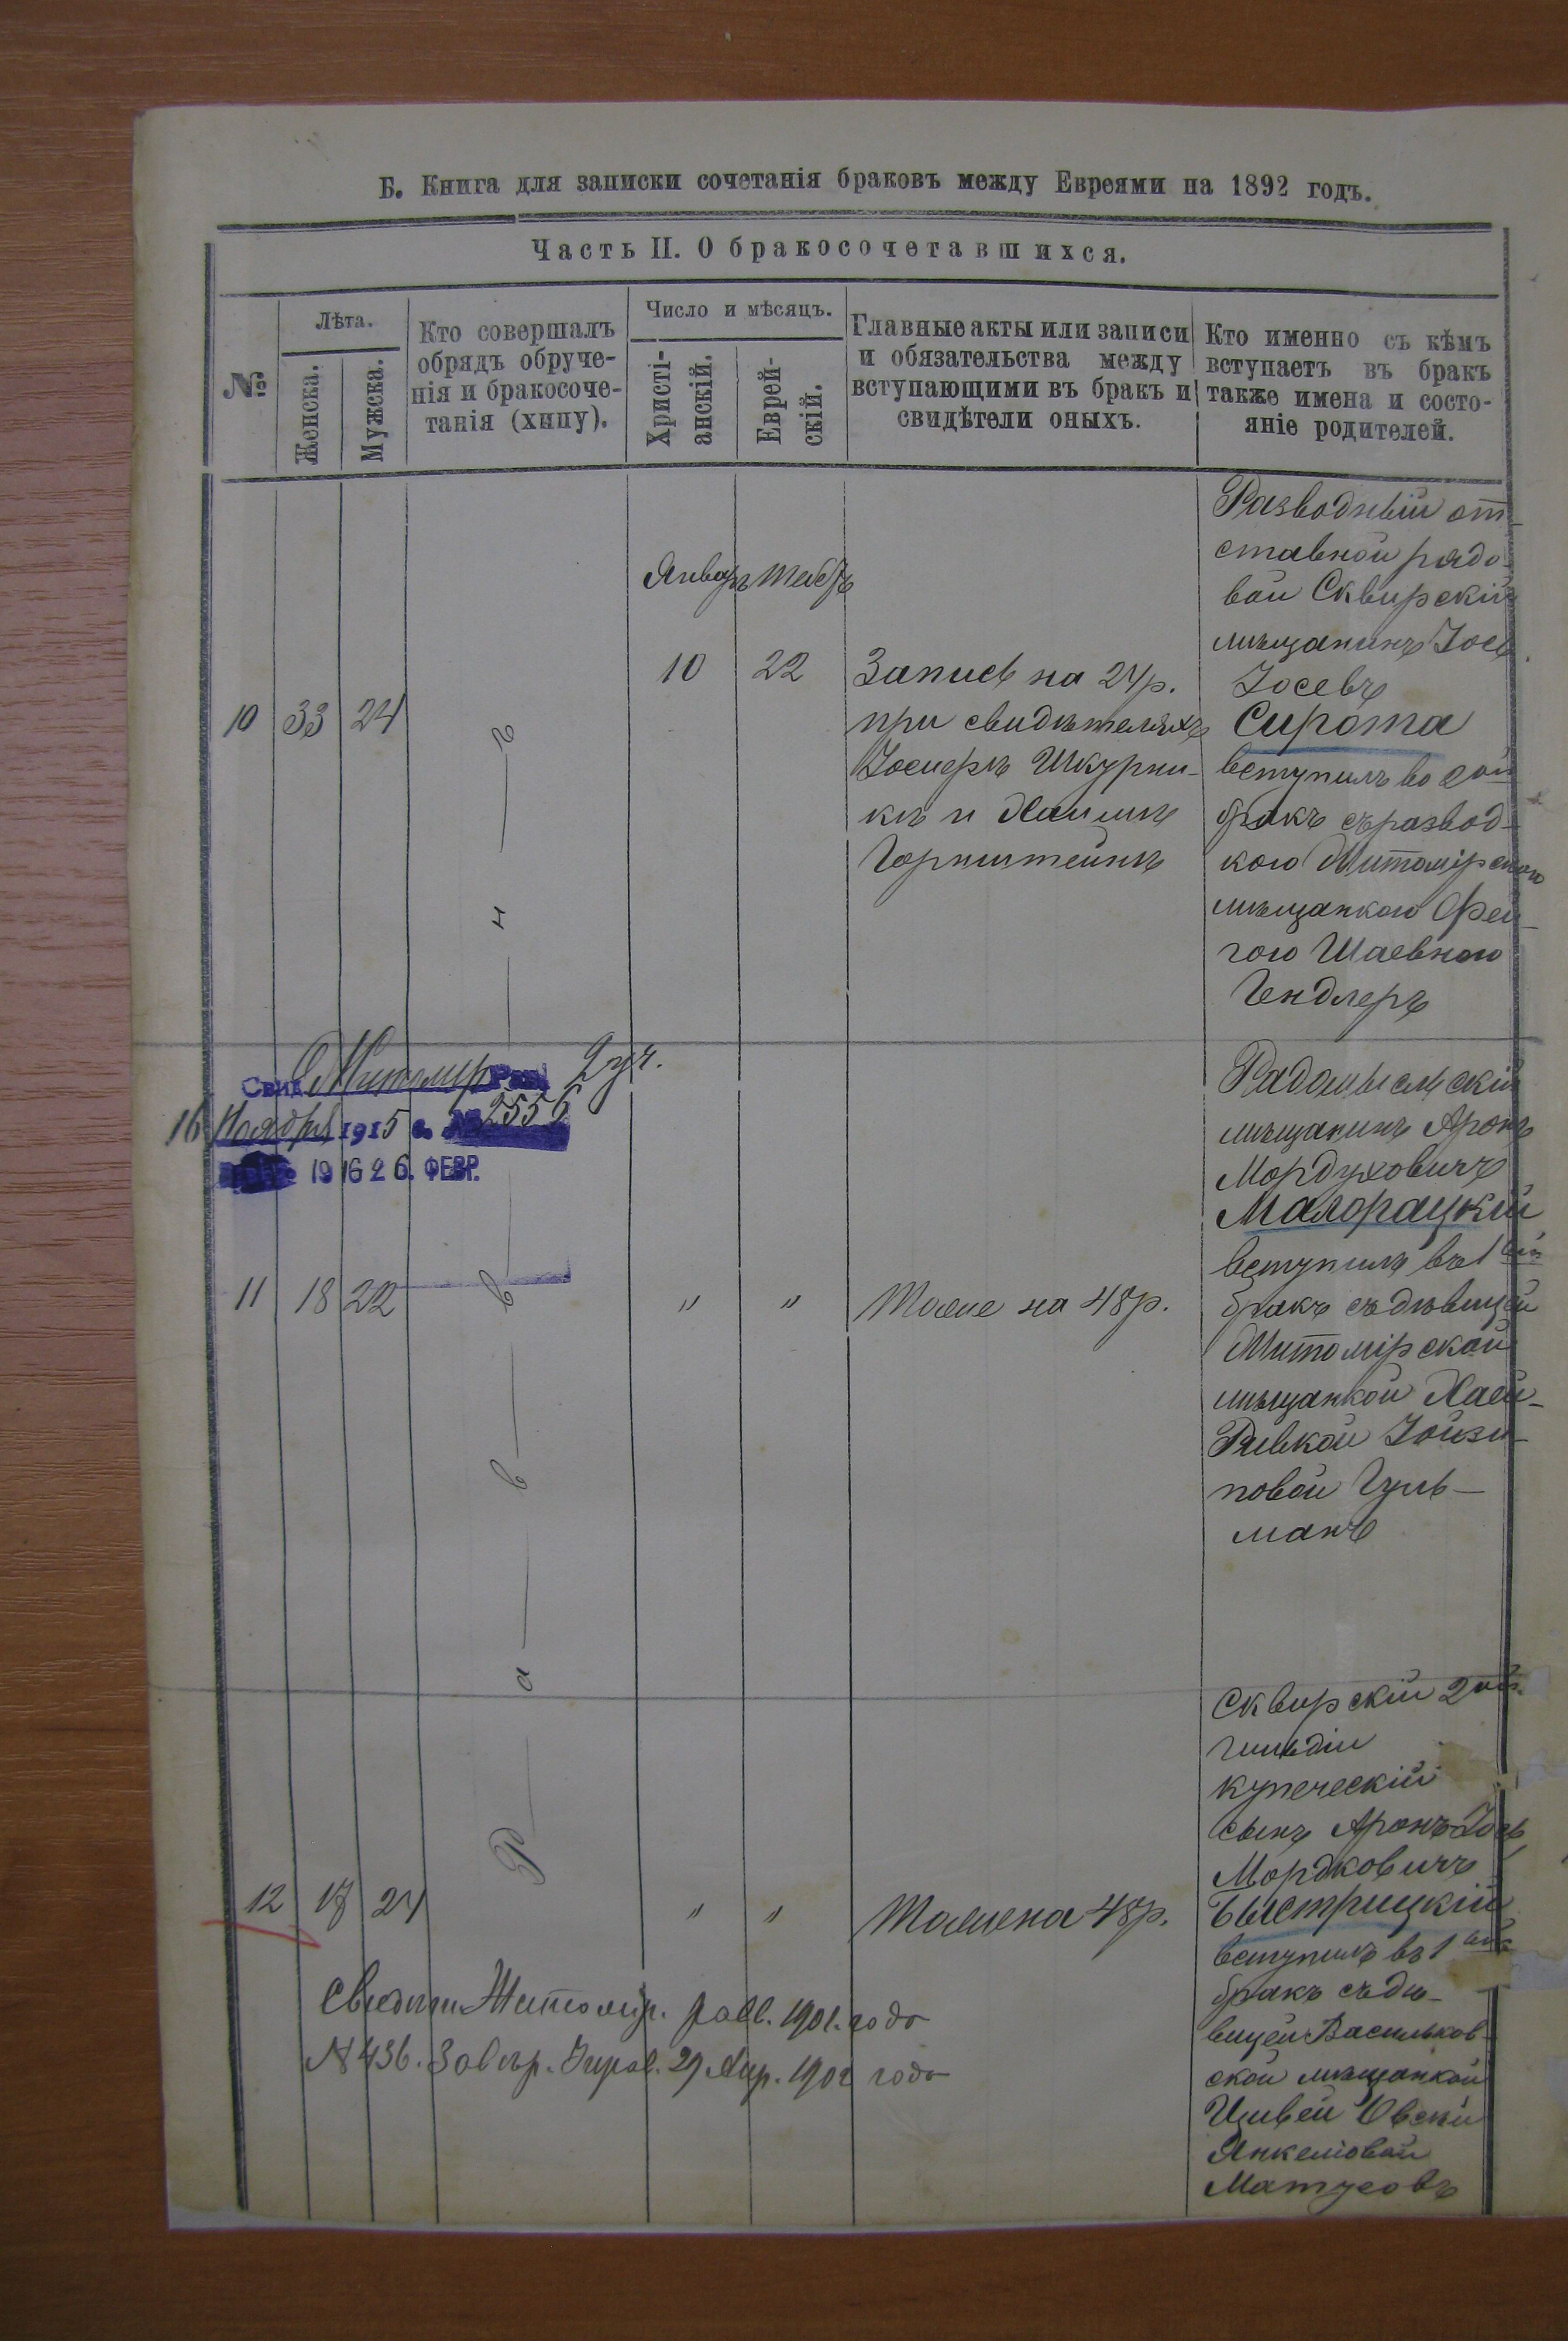 Б. Книга для записки сочетанія браковъ между Евреями на 1892 годъ.
Часть II. О бракосочетавшихся.
№
Лѣта.
Женска.
Мужска.
Кто совершалъ
обрядъ обруче-
нія и бракосоче-
танія (хупу).
Число и мѣсяцъ.
Христі-
анскій.
Еврей-
скій.
Главные акты или записи
и обязательства между
вступающими въ бракъ и
свидѣтели оныхъ.
Кто именно съ кѣмъ
вступаетъ въ бракъ
также имена и состо-
яніе родителей.
Январь
10
33
24
10
22
Запись на 24 р.
при свидѣтеляхъ
Іосифѣ Шкурни-
кѣ и Хаимѣ
Горнштейнѣ
Разводный от-
ставной рядо-
вой Сквирскій
мѣщанинъ Іось
Іосевъ
Сирота
вступилъ во 2ой
бракъ съ развод-
кою Житомірскою
мѣщанкою Фей-
гою Шаевною
Гендлеръ
Р а в в и н ъ
Свид. Житомир Рав 2 уч.
16 Ноября 1915 г. № 2556
1916 26. ФЕВР.
11
18
22
"
"
Тоже на 48 р.
Радомысльскій
мѣщанинъ Аронъ
Мордуховичъ
Малорацкій
вступилъ въ 1ый
бракъ съ дѣвицей
Житомірской
мѣщанкой Хаей-
Ривкой Іойзи-
повой Гуль-
манъ
12
24
"
"
Тоже на 48 р.
Сквирскій 2ой
гильдіи
купеческій
сынъ Аронъ-Іось
Мордковичъ
Быстрицкій
вступилъ въ 1ый
бракъ съ дѣ-
вицей Васильков-
ской мѣщанкой
Цивей
Янкелиовой
Матусовъ
Свидѣт. Житомир. равв. 1901. года
N 436. 29 Апр. 1901 года